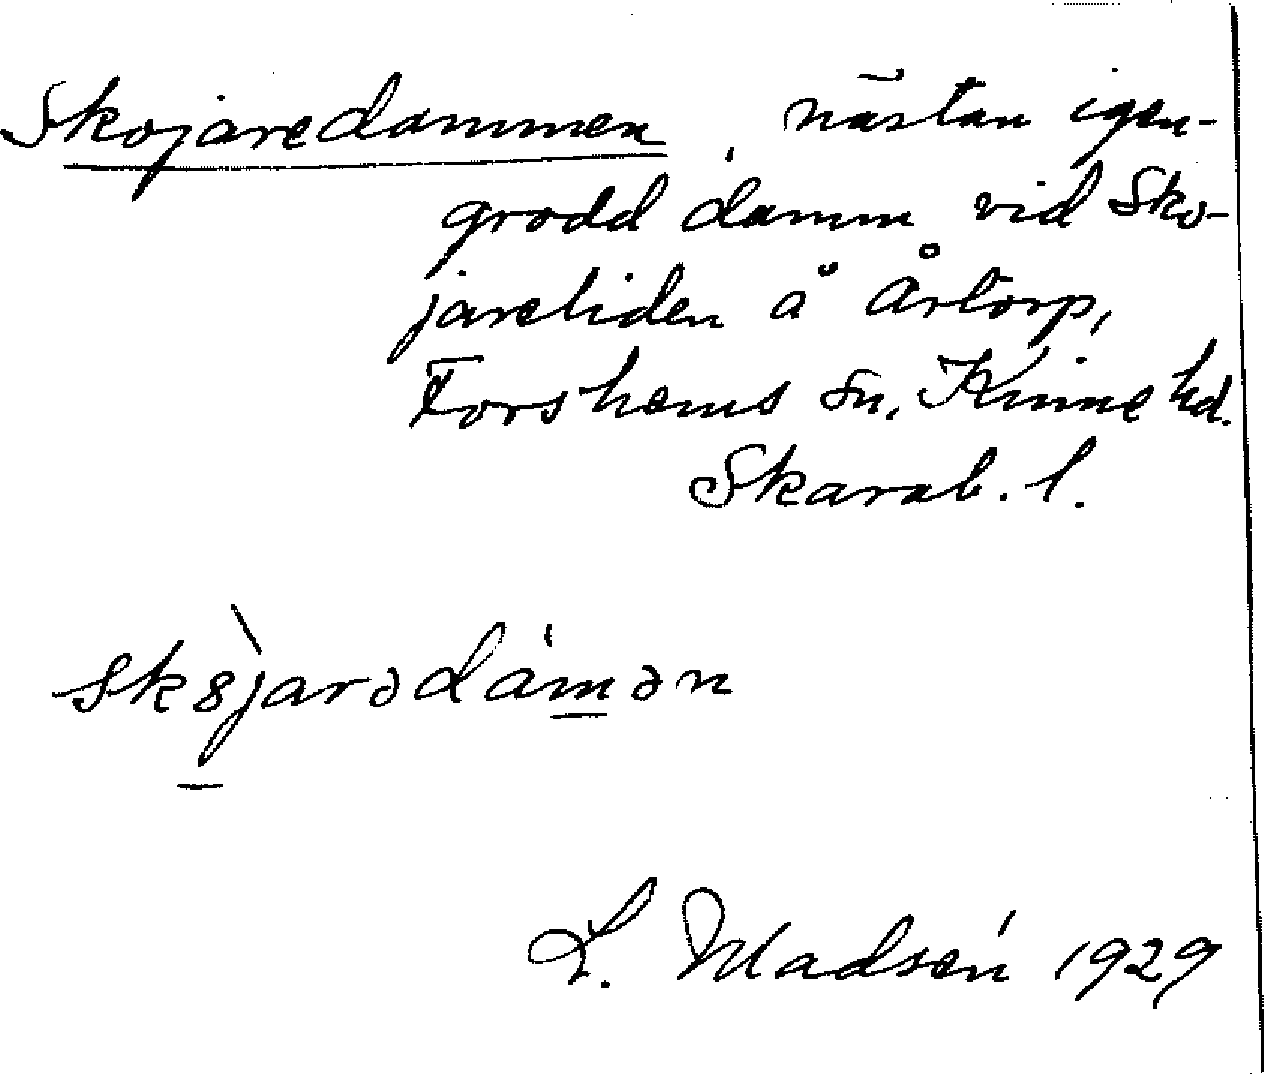 Skojaredammen, nästan igen-
grodd damm vid Sko-
jareliden å Årtorp,
Forshems sn, Kinne hd.
Skarab. l.
skɵ̀jarədámən
L. Madsén 1929